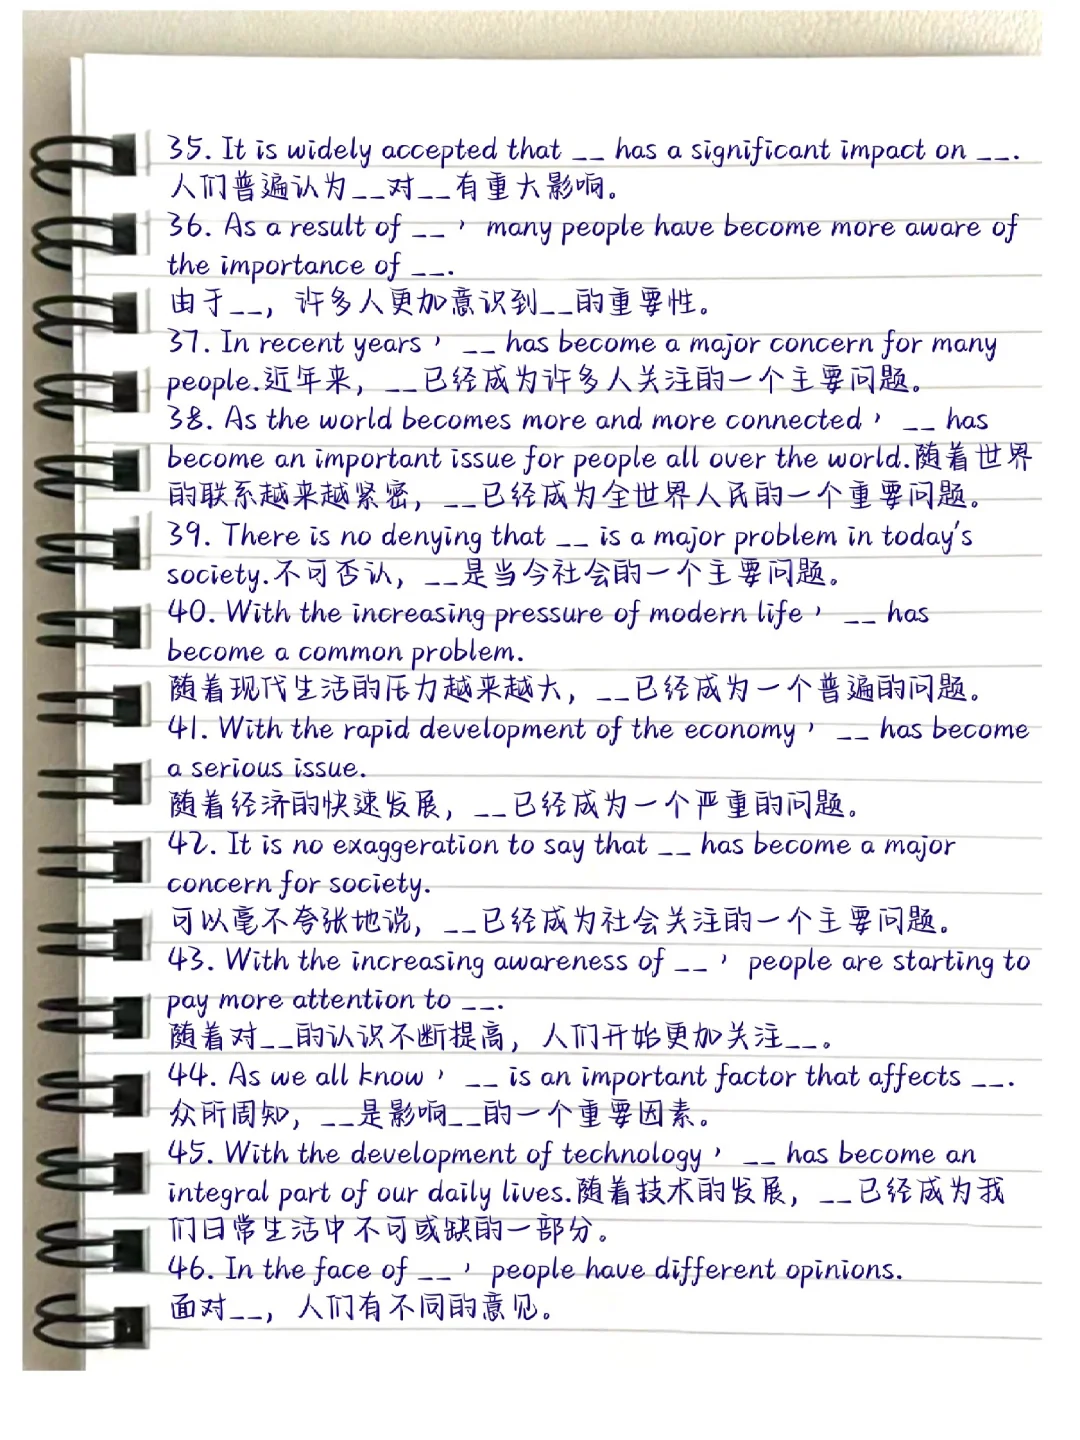 35. It is widely accepted that __ has a significant impact on __.
人们普遍认为__对__有重大影响。
36. As a result of __，many people have become more aware of
the importance of __.
由于__，许多人更加意识到__的重要性。
37. In recent years，__ has become a major concern for many
people.近年来，__已经成为许多人关注的一个主要问题。
38. As the world becomes more and more connected，__ has
become an important issue for people all over the world.随着世界
的联系越来越紧密，__已经成为全世界人民的一个重要问题。
39. There is no denying that __ is a major problem in today's
society.不可否认，__是当今社会的一个主要问题。
40. With the increasing pressure of modern life，__ has
become a common problem.
随着现代生活的压力越来越大，__已经成为一个普遍的问题。
41. With the rapid development of the economy，__ has become
a serious issue.
随着经济的快速发展，__已经成为一个严重的问题。
42. It is no exaggeration to say that __ has become a major
concern for society.
可以毫不夸张地说，__已经成为社会关注的一个主要问题。
43. With the increasing awareness of __，people are starting to
pay more attention to __.
随着对__的认识不断提高，人们开始更加关注__。
44. As we all know，__ is an important factor that affects __.
众所周知，__是影响__的一个重要因素。
45. With the development of technology，__ has become an
integral part of our daily lives.随着技术的发展，__已经成为我
们日常生活中不可或缺的一部分。
46. In the face of __，people have different opinions.
面对__，人们有不同的意见。